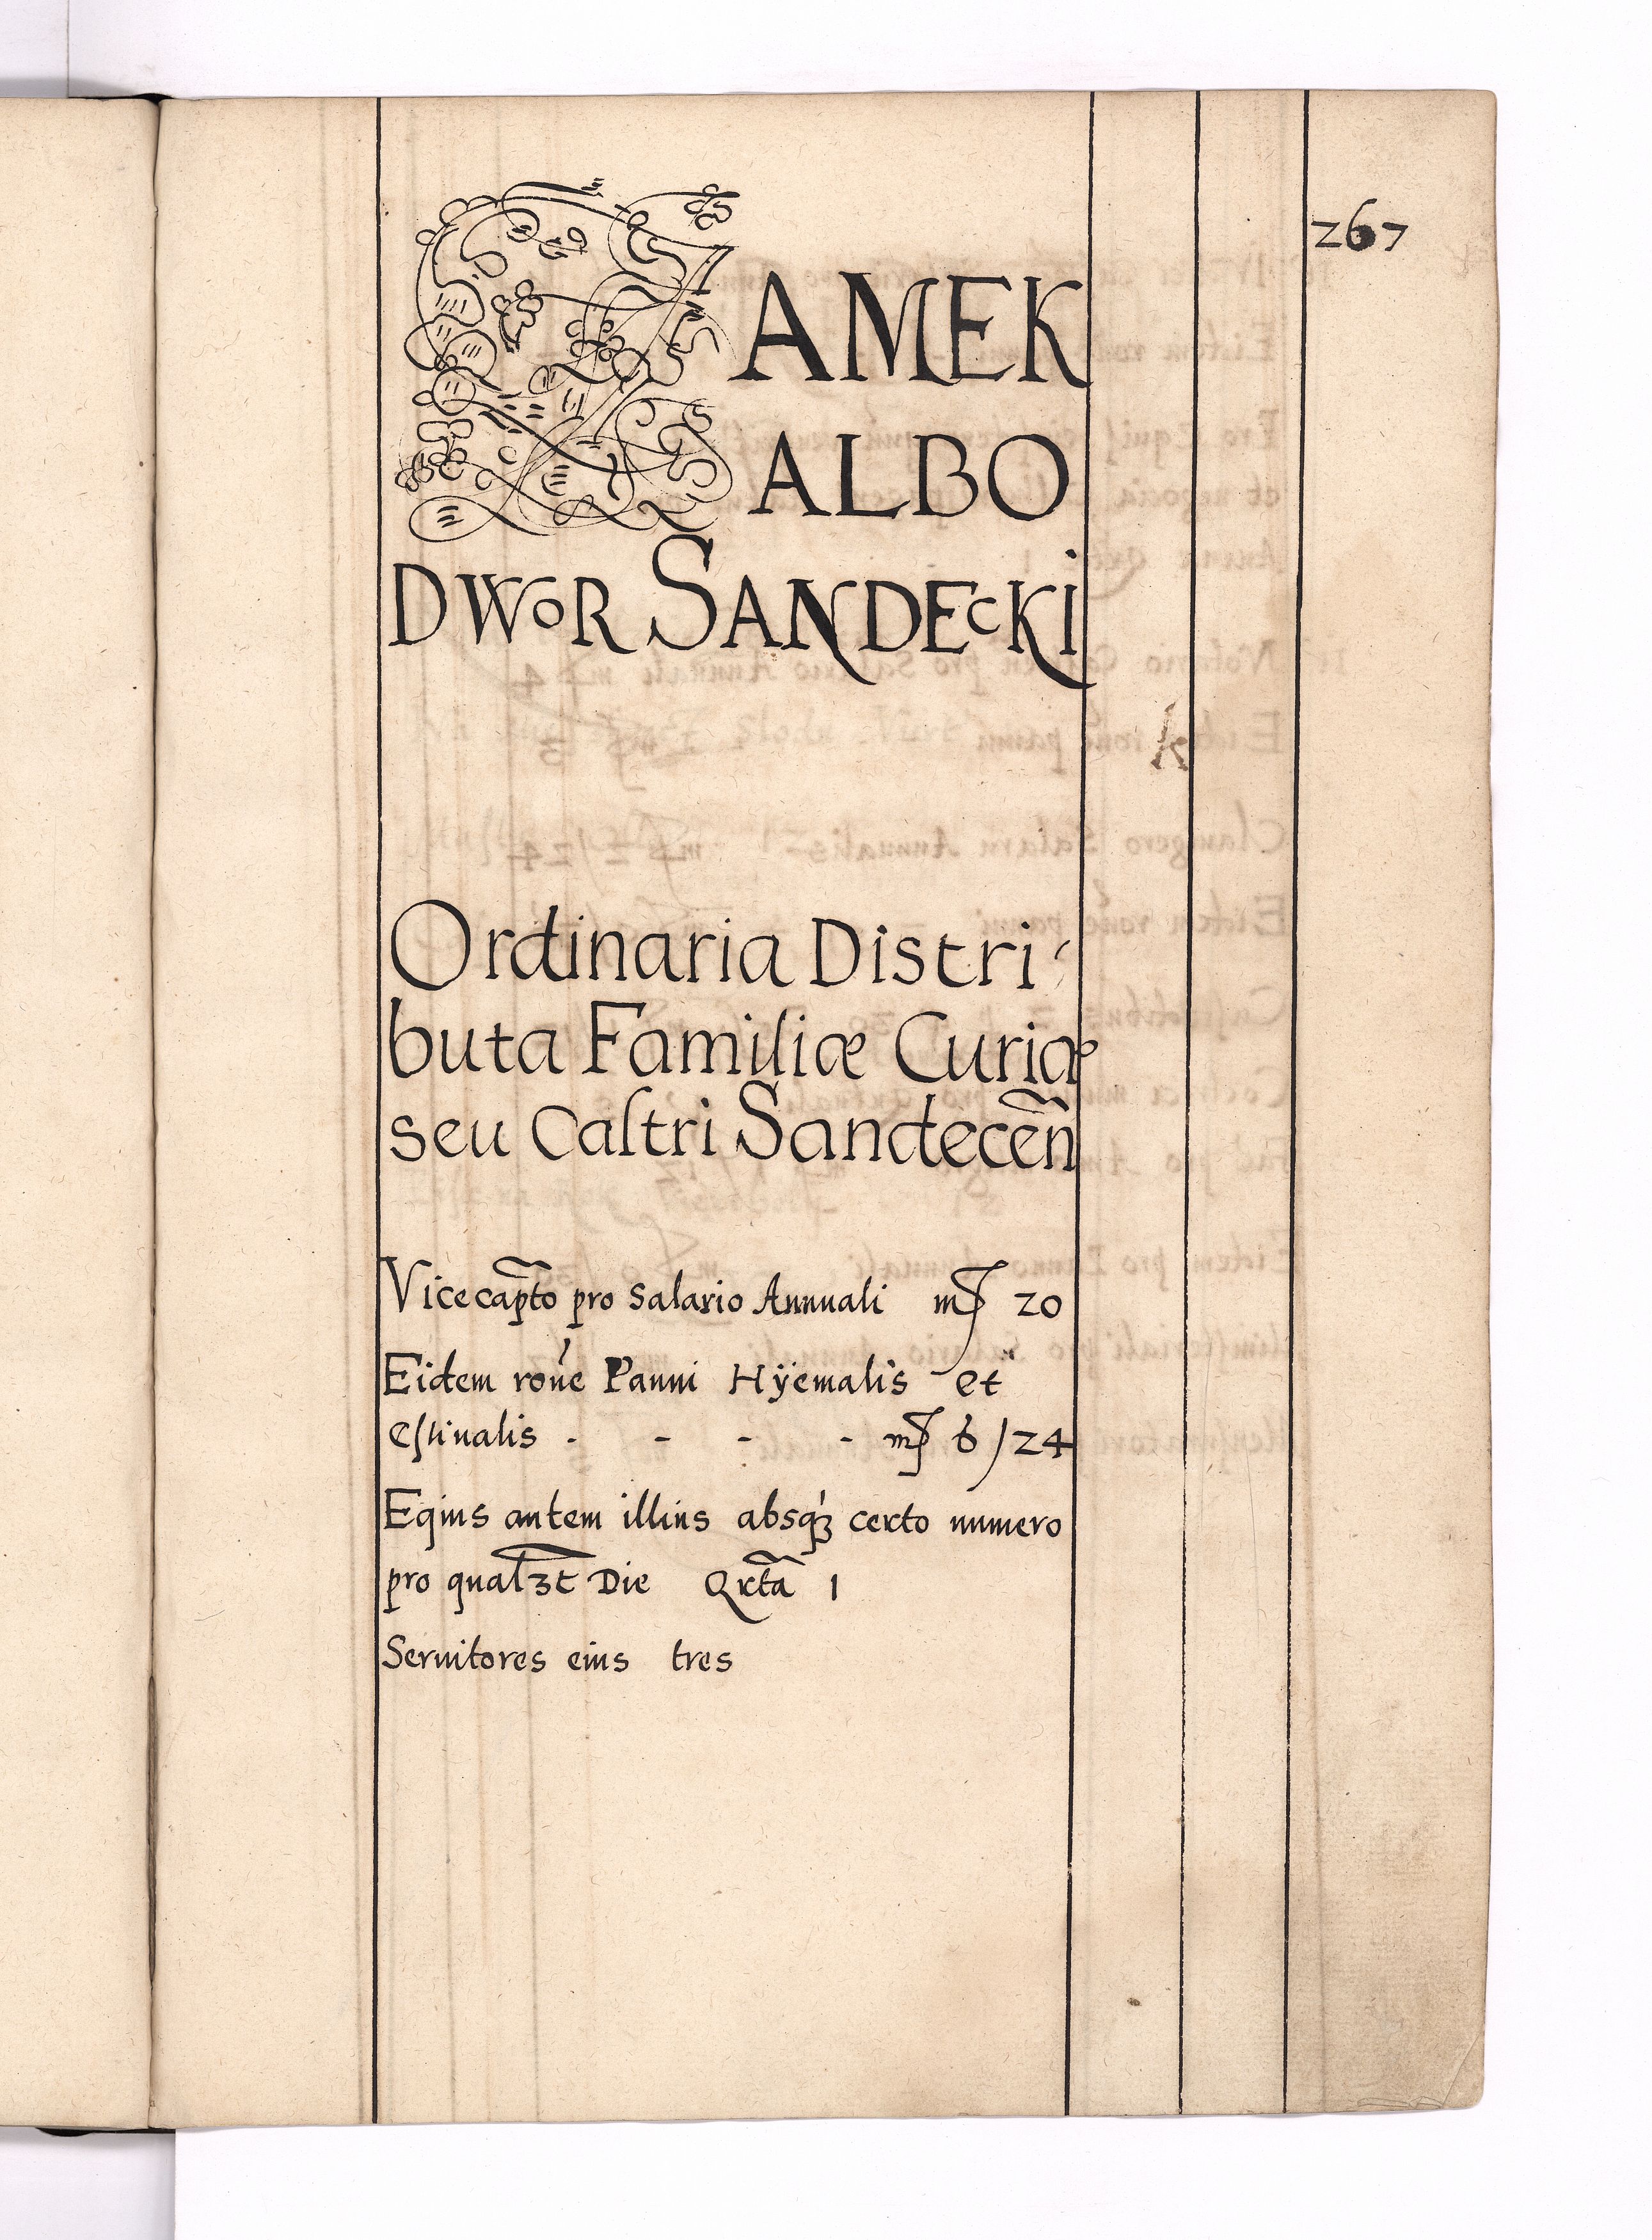 267
ZAMEK
ALBO
DWOR SANDECKI
Ordinaria Distri-
buta Familiæ Curiæ
seu Castri Sandeceñ
Vicecap̃to pro Salario Annuali mꝭ 20
Eidem rone Panni Hÿemalis et
estiualis - - - - mꝭ 6/24
Equis autem illius absqꝫ certo numero
pro qualꝫt Die Qrta 1
Seruitores eius tres